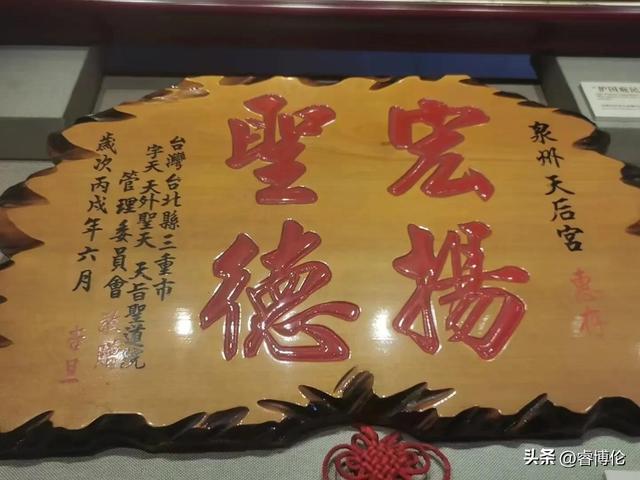 泉州天后宮 惠存
宏揚
聖德
台灣台北縣三重市
字天 天外聖天 天旨聖道院
管理委員會 敬贈
歲次丙戌年六月 吉旦
"护国庇民
头条 @睿博伦